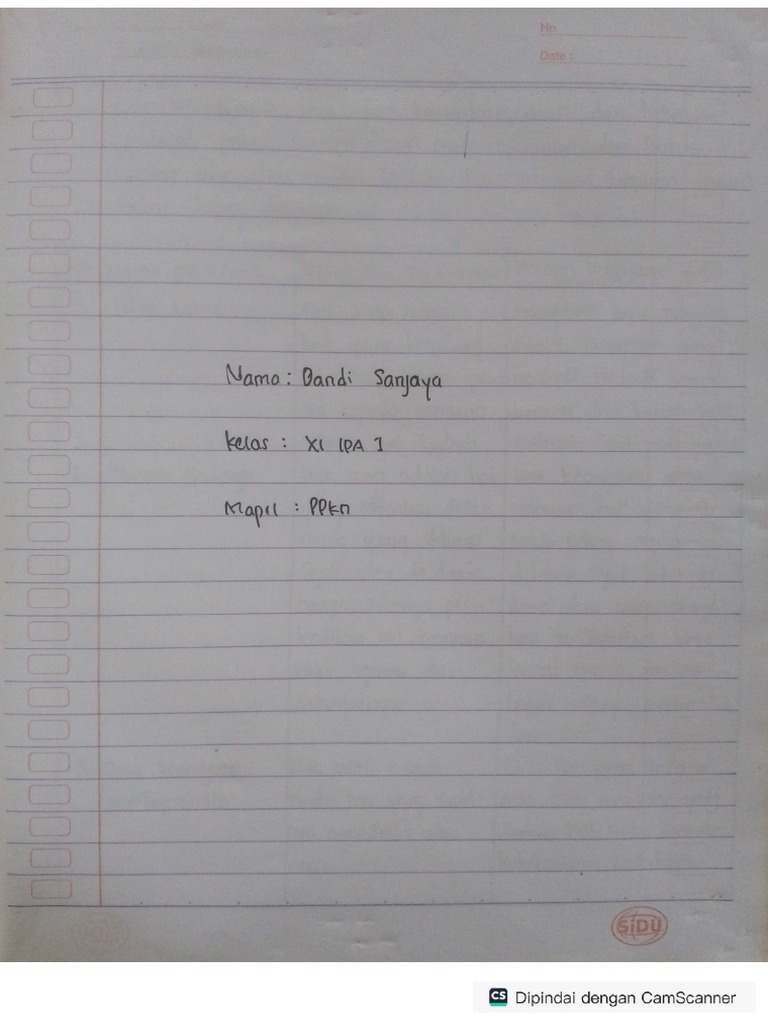 No.
Date :
Nama : Dandi Sanjaya
Kelas : XI IPA 1
Mapel : PPKn
SiDU
CS Dipindai dengan CamScanner